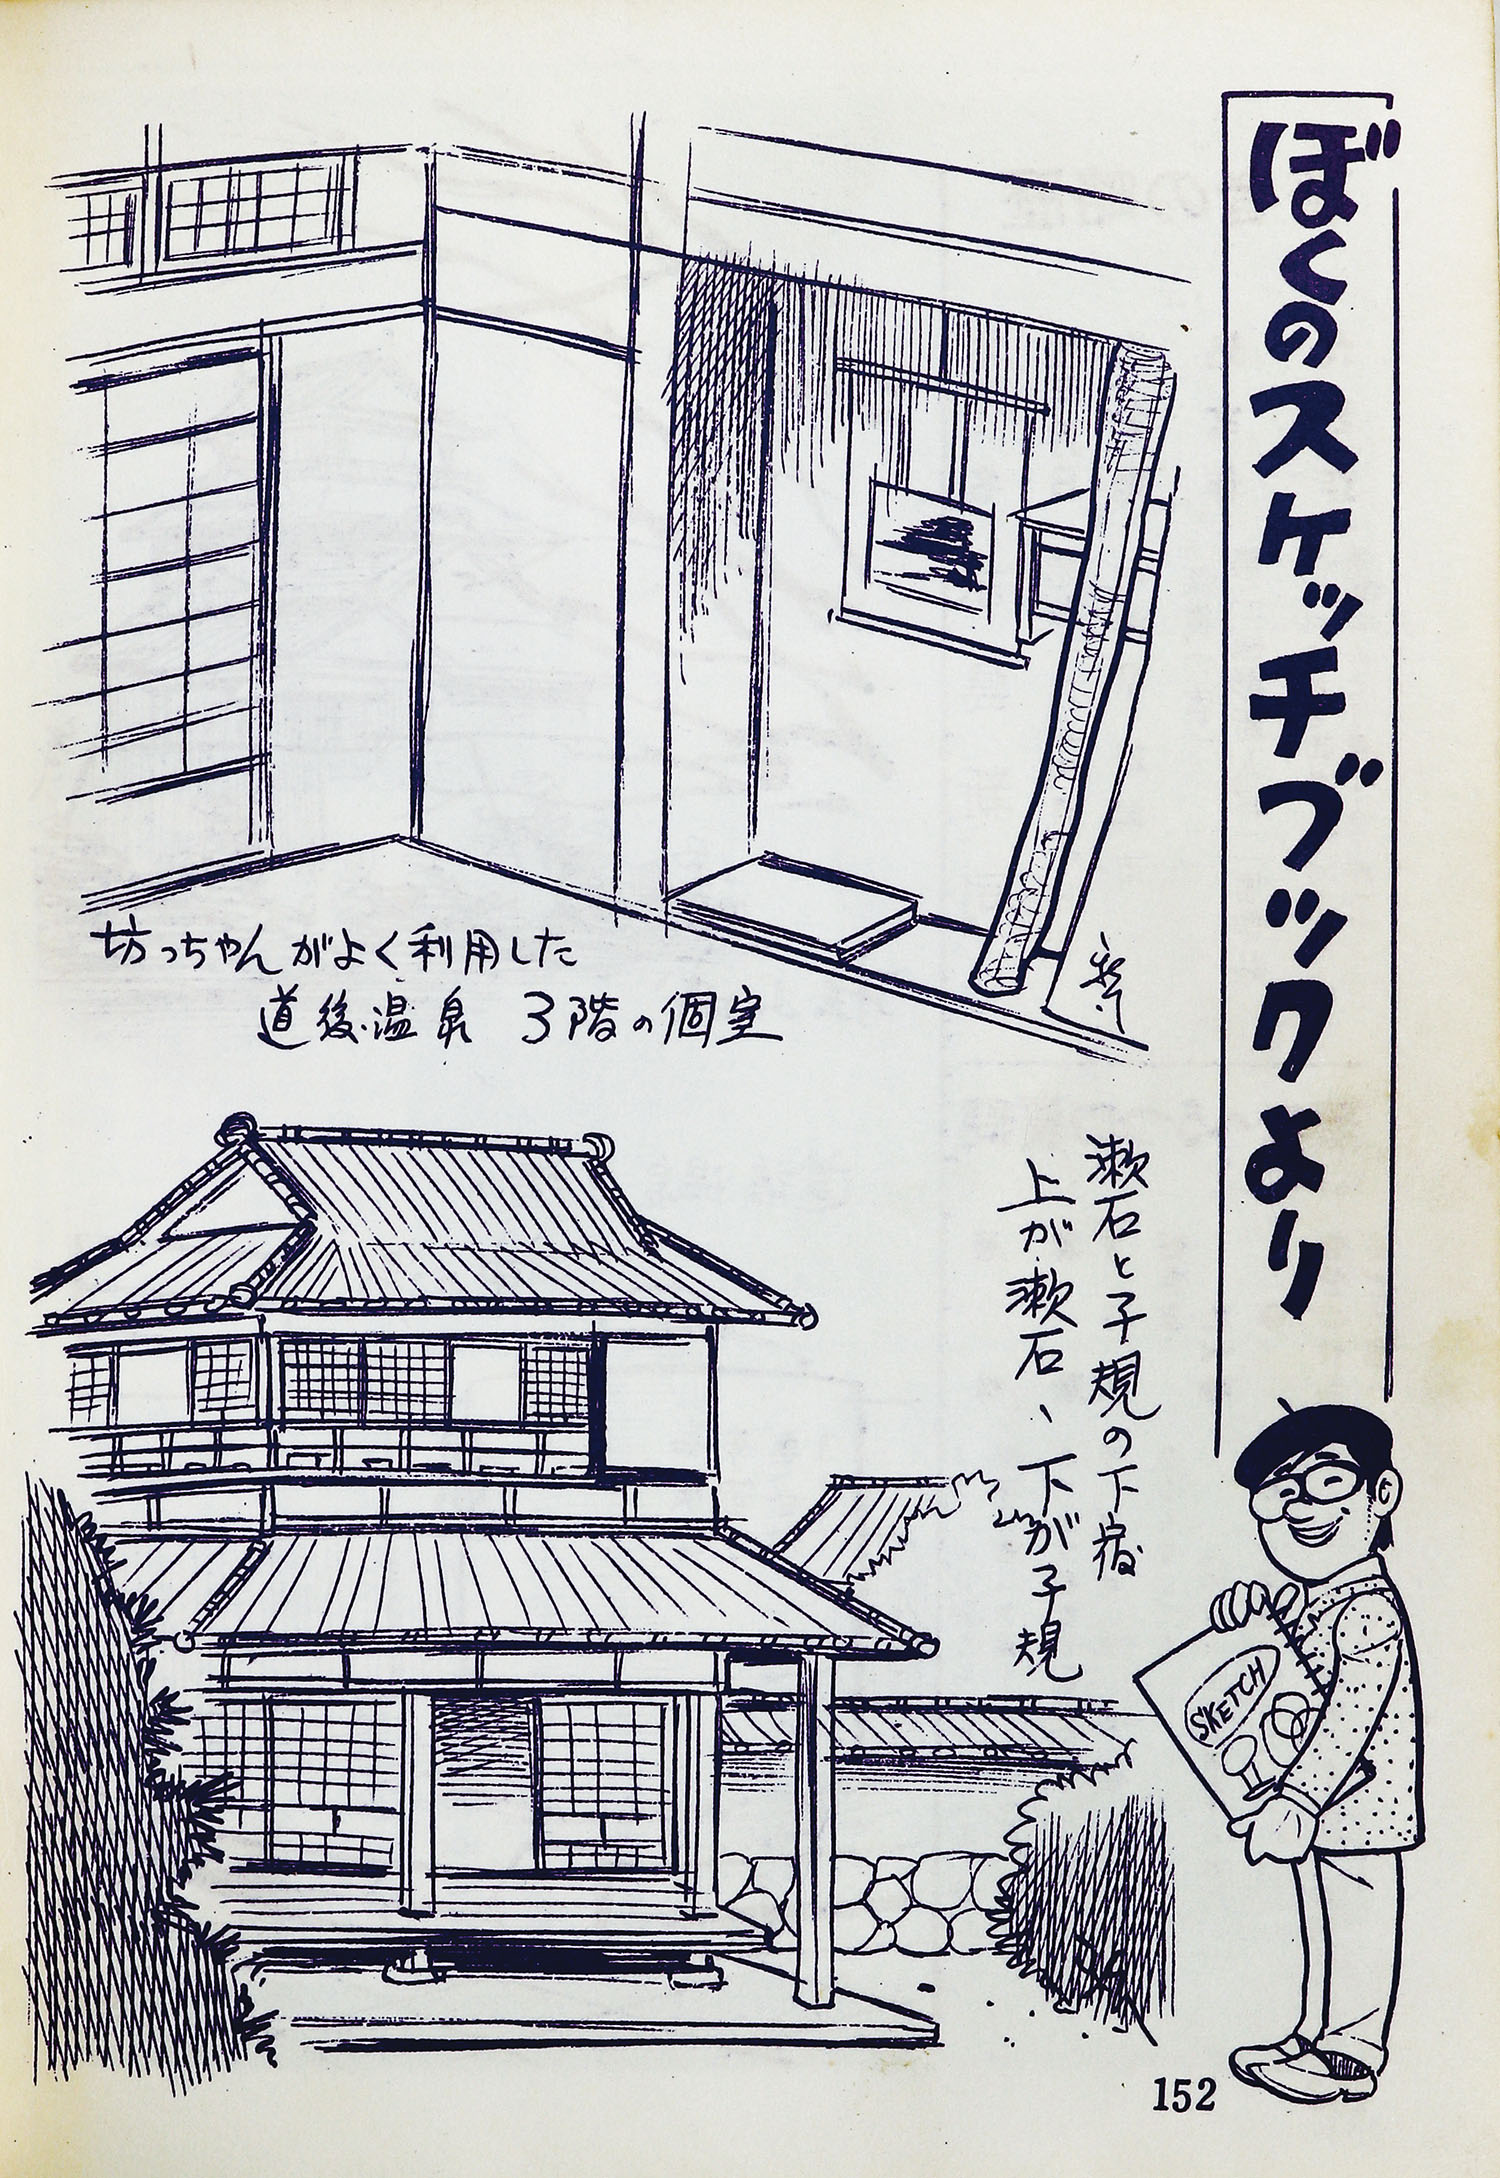 ぼくのスケッチブックより
坊っちゃんがよく利用した
道後温泉 3階の個室
漱石と子規の下宿
上が漱石、下が子規
SKETCH
152